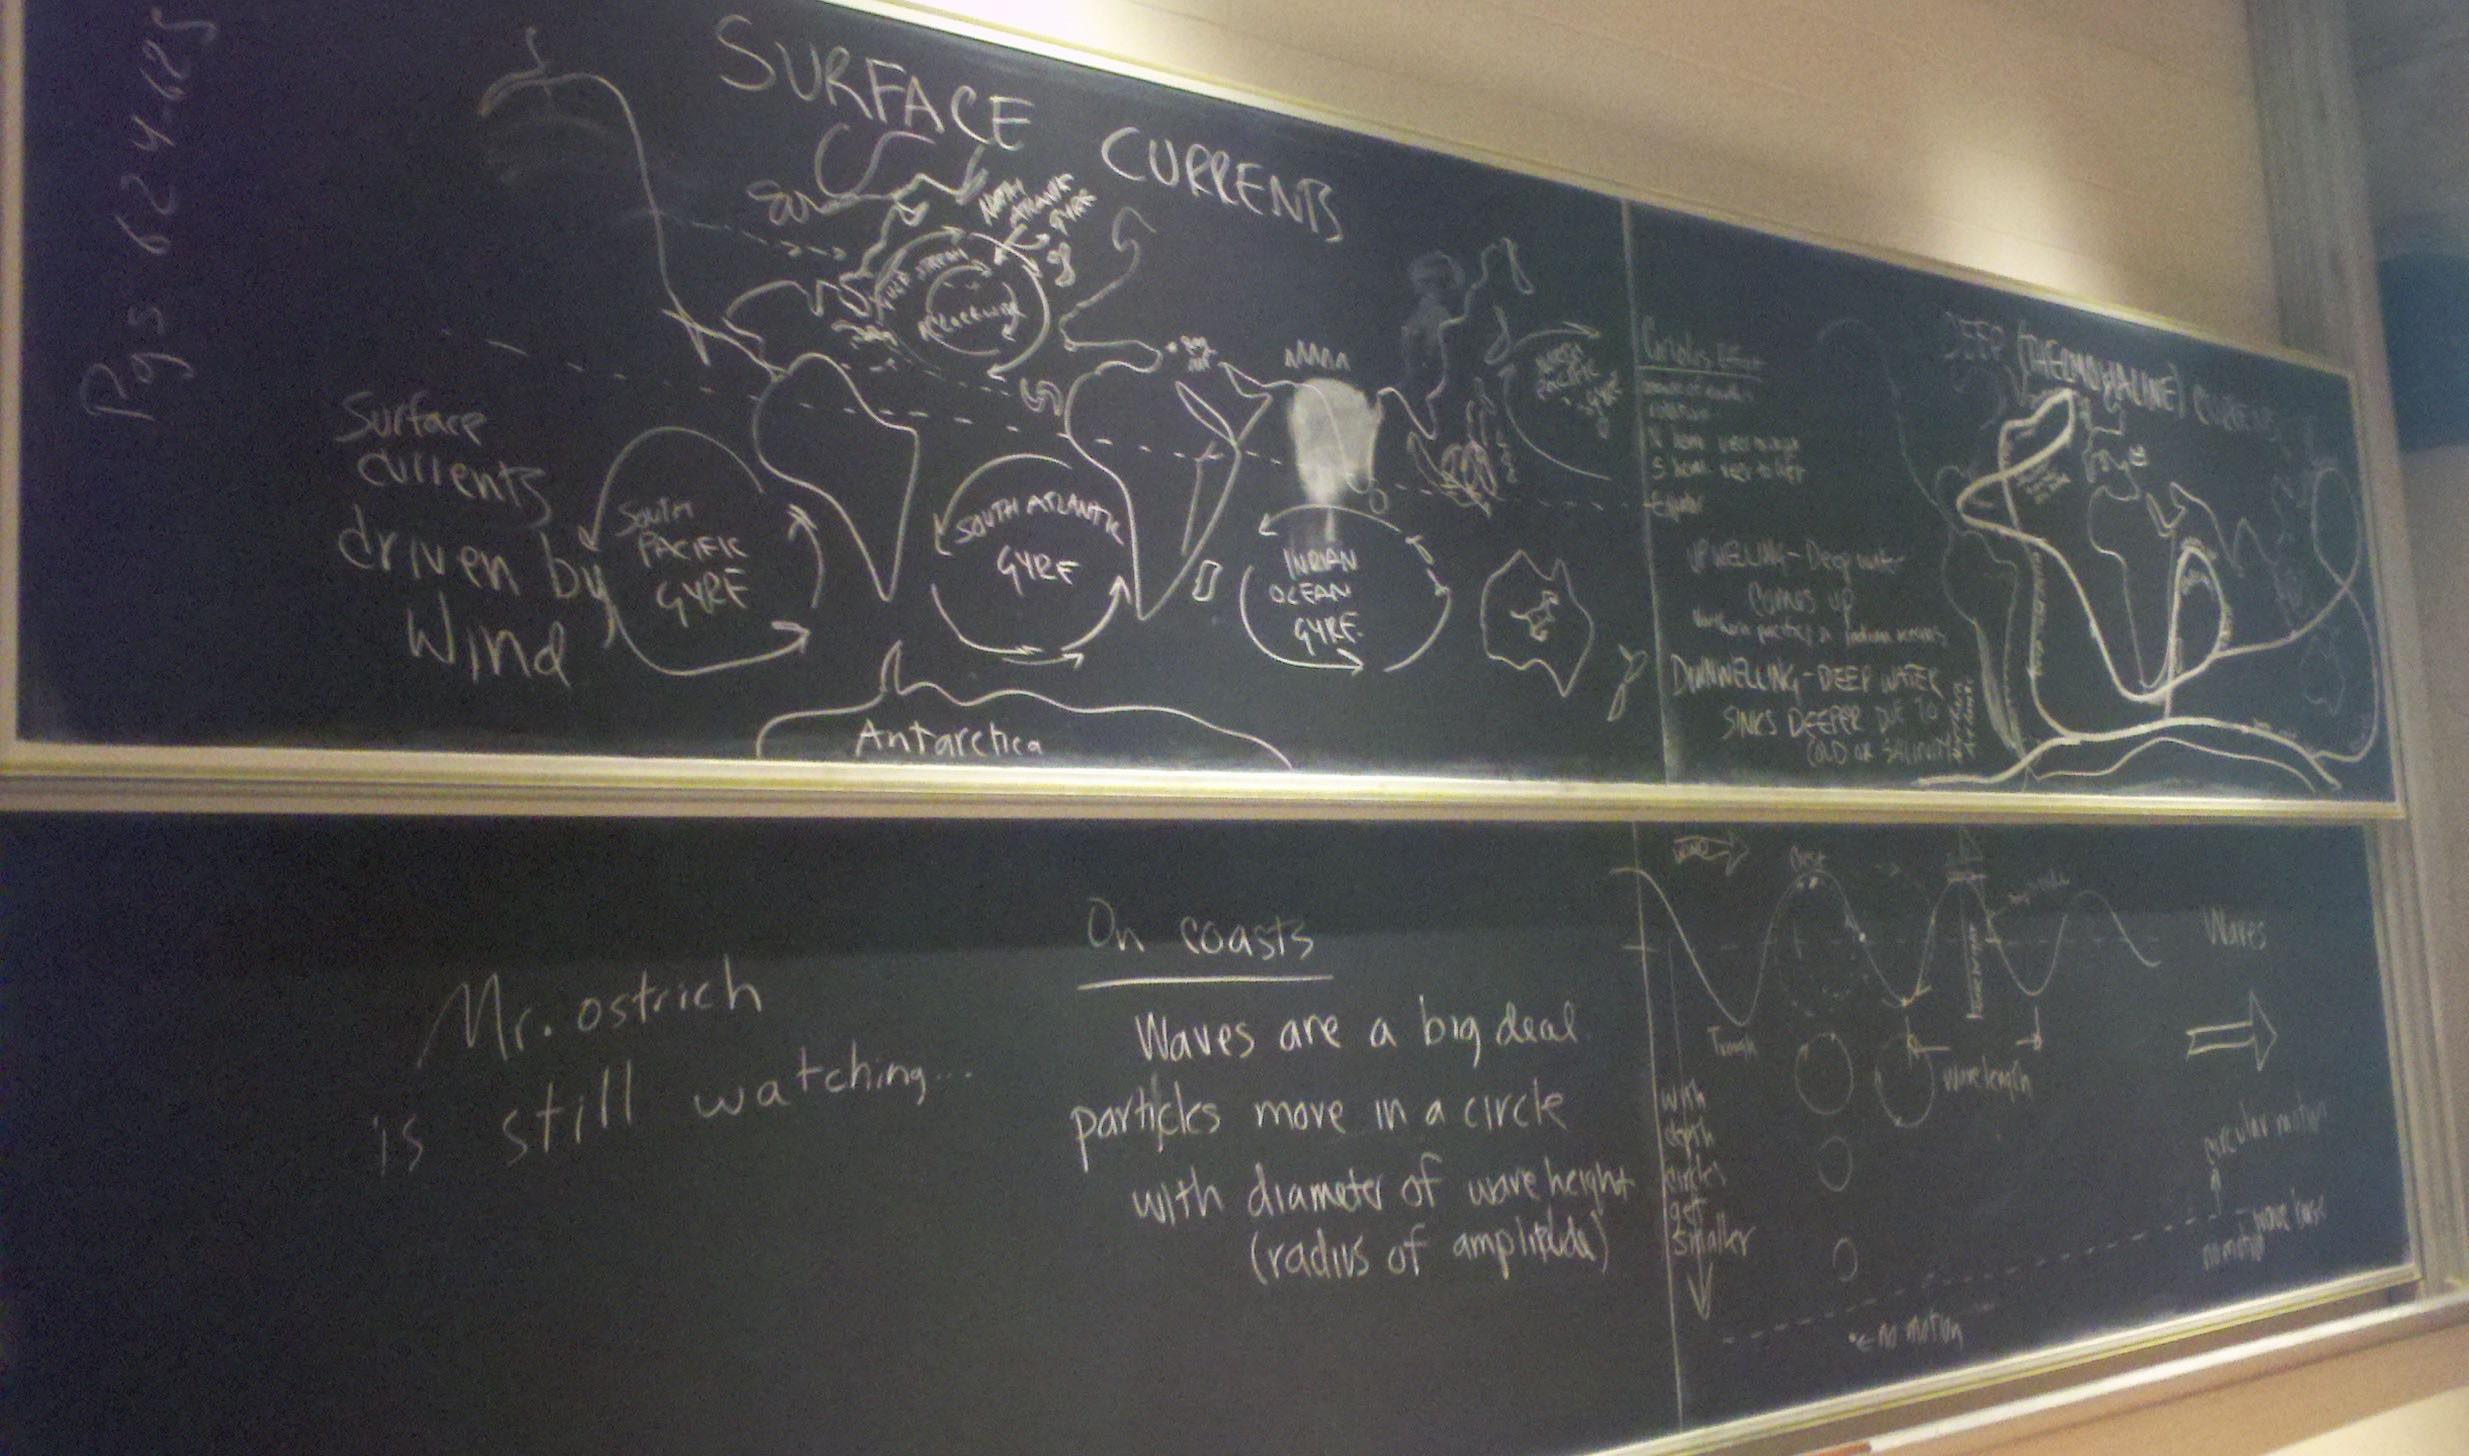 Pgs 624-625
SURFACE CURRENTS
NORTH
ATLANTIC
GYRE
GULF STREAM
Clockwise
NORTH
PACIFIC
GYRE
Surface
currents
driven by
Wind
SOUTH
PACIFIC
GYRE
SOUTH ATLANTIC
GYRE
INDIAN
OCEAN
GYRE
Antarctica
Coriolis Effect
rotation
N hem veer to right
S hem veer to left
Equator
UPWELLING - Deep water
comes up
Northern pacific or indian oceans
DOWNWELLING - DEEP WATER
SINKS DEEPER DUE TO
COLD OR SALINITY
DEEP (THERMOHALINE) CURRENTS
Mr. ostrich
is still watching...
On coasts
Waves are a big deal
particles move in a circle
with diameter of wave height
(radius of amplitude)
WIND
Crest
Trough
wavelength
Waves
with
depth
circles
get
smaller
circular motion
wave base
no motion
no motion